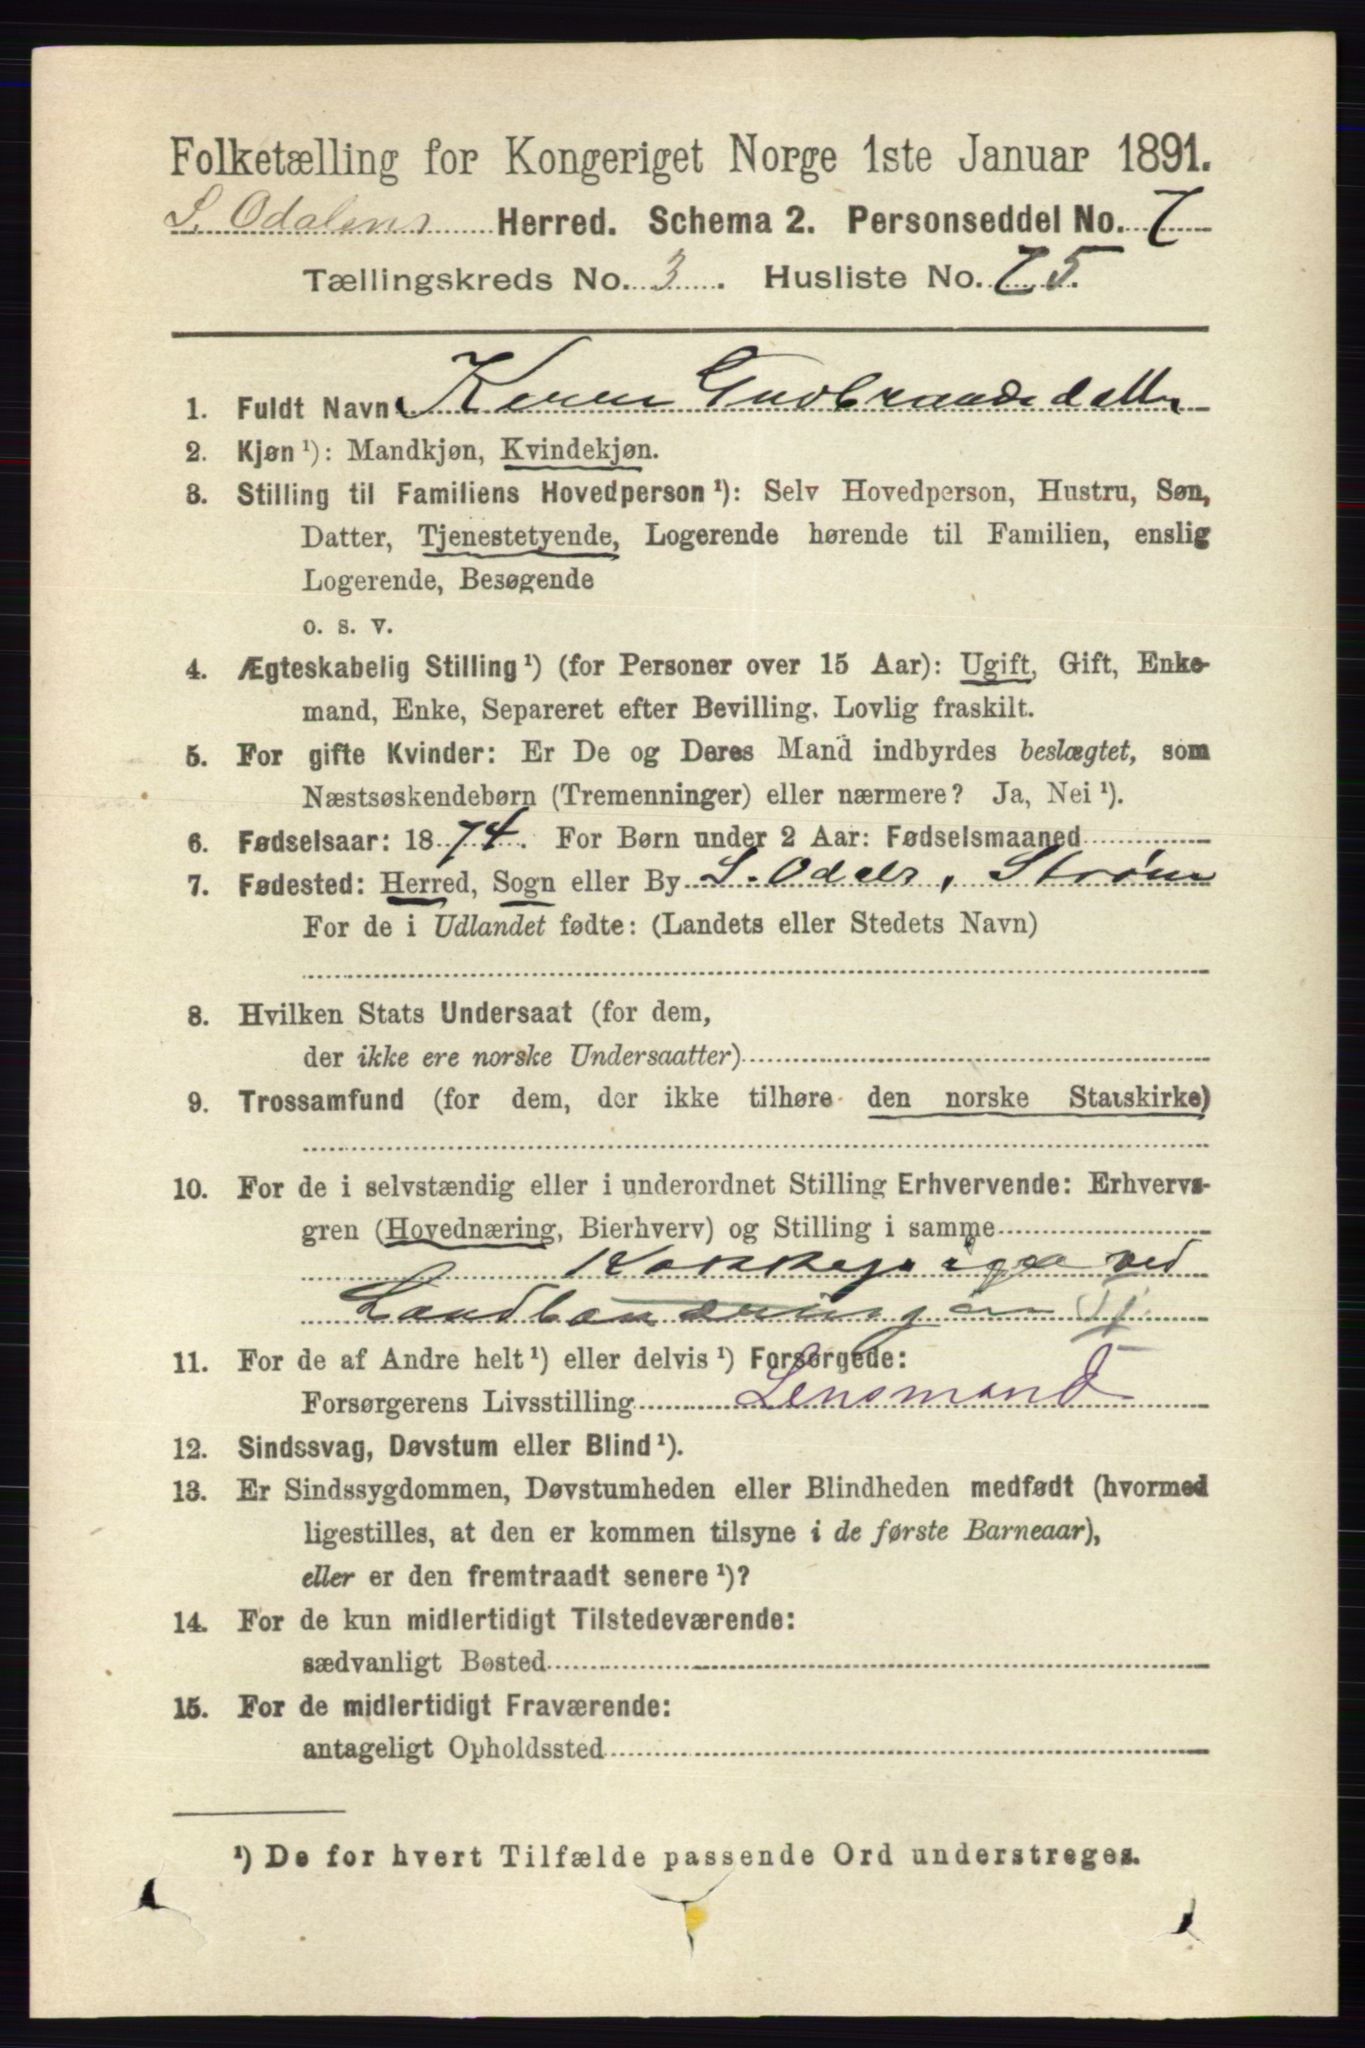 Folketælling for Kongeriget Norge 1ste Januar 1891.
S. Odalens Herred. Schema 2. Personseddel No. 7
Tællingskreds No. 3. Husliste No. 75.
1. Fuldt Navn Karen Gudbrandsdatter
2. Kjøn ¹): Mandkjøn, Kvindekjøn.
3. Stilling til Familiens Hovedperson ¹): Selv Hovedperson, Hustru, Søn,
Datter, Tjenestetyende, Logerende hørende til Familien, enslig
Logerende, Besøgende
o. s. v.
4. Ægteskabelig Stilling ¹) (for Personer over 15 Aar): Ugift, Gift, Enke-
mand, Enke, Separeret efter Bevilling. Lovlig fraskilt.
5. For gifte Kvinder: Er De og Deres Mand indbyrdes beslægtet, som
Næstsøskendebørn (Tremenninger) eller nærmere? Ja, Nei ¹).
6. Fødselsaar: 1874. For Børn under 2 Aar: Fødselsmaaned
7. Fødested: Herred, Sogn eller By S. Odals, Strøm
For de i Udlandet fødte: (Landets eller Stedets Navn)
8. Hvilken Stats Undersaat (for dem,
der ikke ere norske Undersaatter)
9. Trossamfund (for dem, der ikke tilhøre den norske Statskirke)
10. For de i selvstændig eller i underordnet Stilling Erhvervende: Erhvervs-
gren (Hovednæring, Bierhverv) og Stilling i samme
Kokkepige ved
11. For de af Andre helt ¹) eller delvis ¹) Forsørgede:
Forsørgerens Livsstilling Lensmand
12. Sindssvag, Døvstum eller Blind ¹).
13. Er Sindssygdommen, Døvstumheden eller Blindheden medfødt (hvormed
ligestilles, at den er kommen tilsyne i de første Barneaar),
eller er den fremtraadt senere ¹)?
14. For de kun midlertidigt Tilstedeværende:
sædvanligt Bosted
15. For de midlertidigt Fraværende:
antageligt Opholdssted
¹) De for hvert Tilfælde passende Ord understreges.